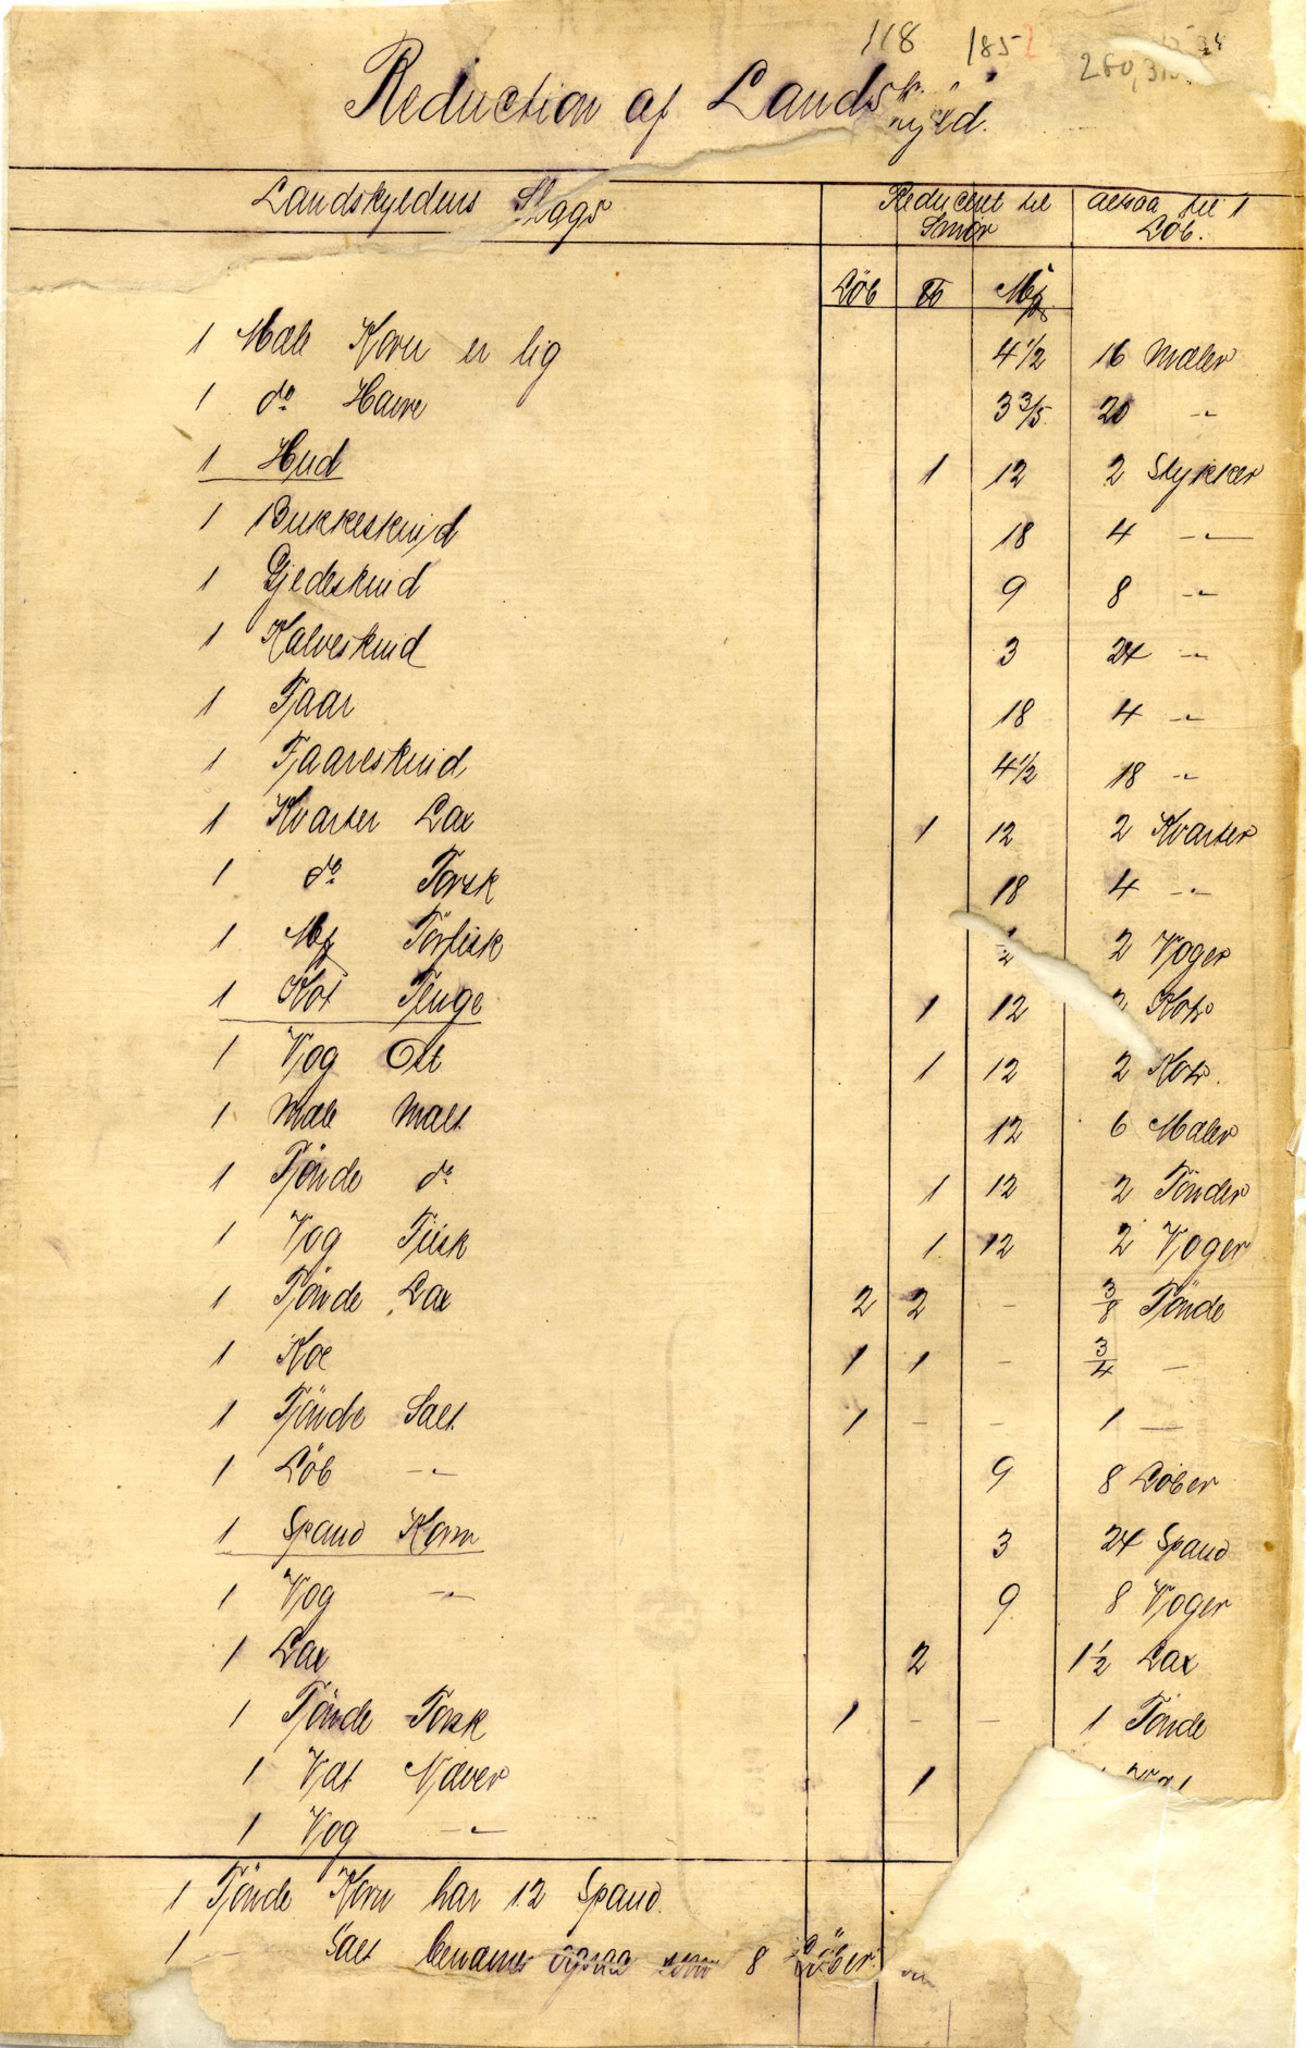 118 1852
Reduction af Landskyld.
Landskyldens Slags Reduceret til Smør altsaa til 1 Löb.
Löb ℔ Mk
1 Mæle Korn er lig 4 1/2 16 Mæler
1 do Havre 3 3/5 20 -"-
1 Hud 1 12 2 Stykker
1 Bukkeskind 18 4 -"-
1 Gjedeskind 9 8 -"-
1 Kalveskind 3 24 -"-
1 Faar 18 4 -"-
1 Faareskind 4 1/2 18 -"-
1 Kvarter Lax 1 12 2 Kvarter
1 do Torsk 18 4 -"-
1 Mk Törfisk 1/2 2 Voger
1 Kot Tenge 1 12 2 Kotr
1 Vog Ost 1 12 2 Kotr.
1 Mæle Malt 12 6 Mæler
1 Tönde do 1 12 2 Tönder
1 Vog Fisk 1 12 2 Voger
1 Tönde Lax 2 2 - 3/8 Tönde
1 Koe 1 1 - 3/4 -
1 Tönde Salt 1 - - 1 -
1 Löb -"- 9 8 Löber
1 Spand Korn 3 24 Spand
1 Vog -"- 9 8 Voger
1 Lax 2 1 1/2 Lax
1 Tönde Torsk 1 - - 1 Tönde
1 Væt Næver 1
1 Vog -"-
1 Tönde Korn har 12 Spand.
1 - Salt 8 Löber